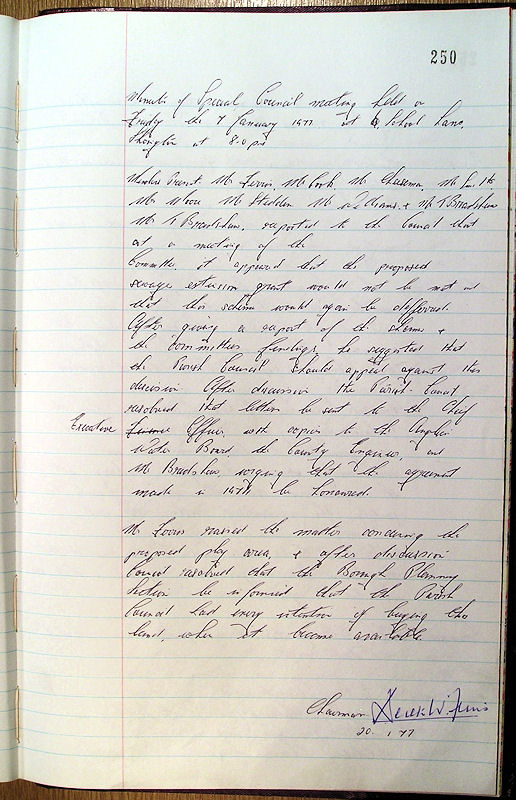 250
Minutes of Special Council meeting held on
Friday the 7 January 1977 at School Lane,
Thrington at 8.0 pm
Members Present. Mr Ferris, Mr Mr Cheeseman, Mr
Mr Mr Hadden Mr Williams & Mr T Bradshaw
Mr T Bradshaw, reported to the Council that
at a meeting of the
Committee it appeared that the proposed
sewage extension grant would not be met and
that this scheme would again be deferred.
After giving a report of the scheme &
the committees findings, he suggested that
the Parish Council should appeal against this
decision. After discussion the Parish Council
resolved that letters be sent to the Chief
Executive Officer with copies to the Anglian
Water Board, the County Engineer, and
Mr Bradshaw, urging that the agreement
made in 1974 be honoured.
Mr Ferris raised the matter concerning the
proposed play area, & after discussion
Council resolved that the Borough Planning
Section be informed that the Parish
Council had every intention of buying the
land, when it became available.
Chairman Derek W. Ferris
20. 1 77